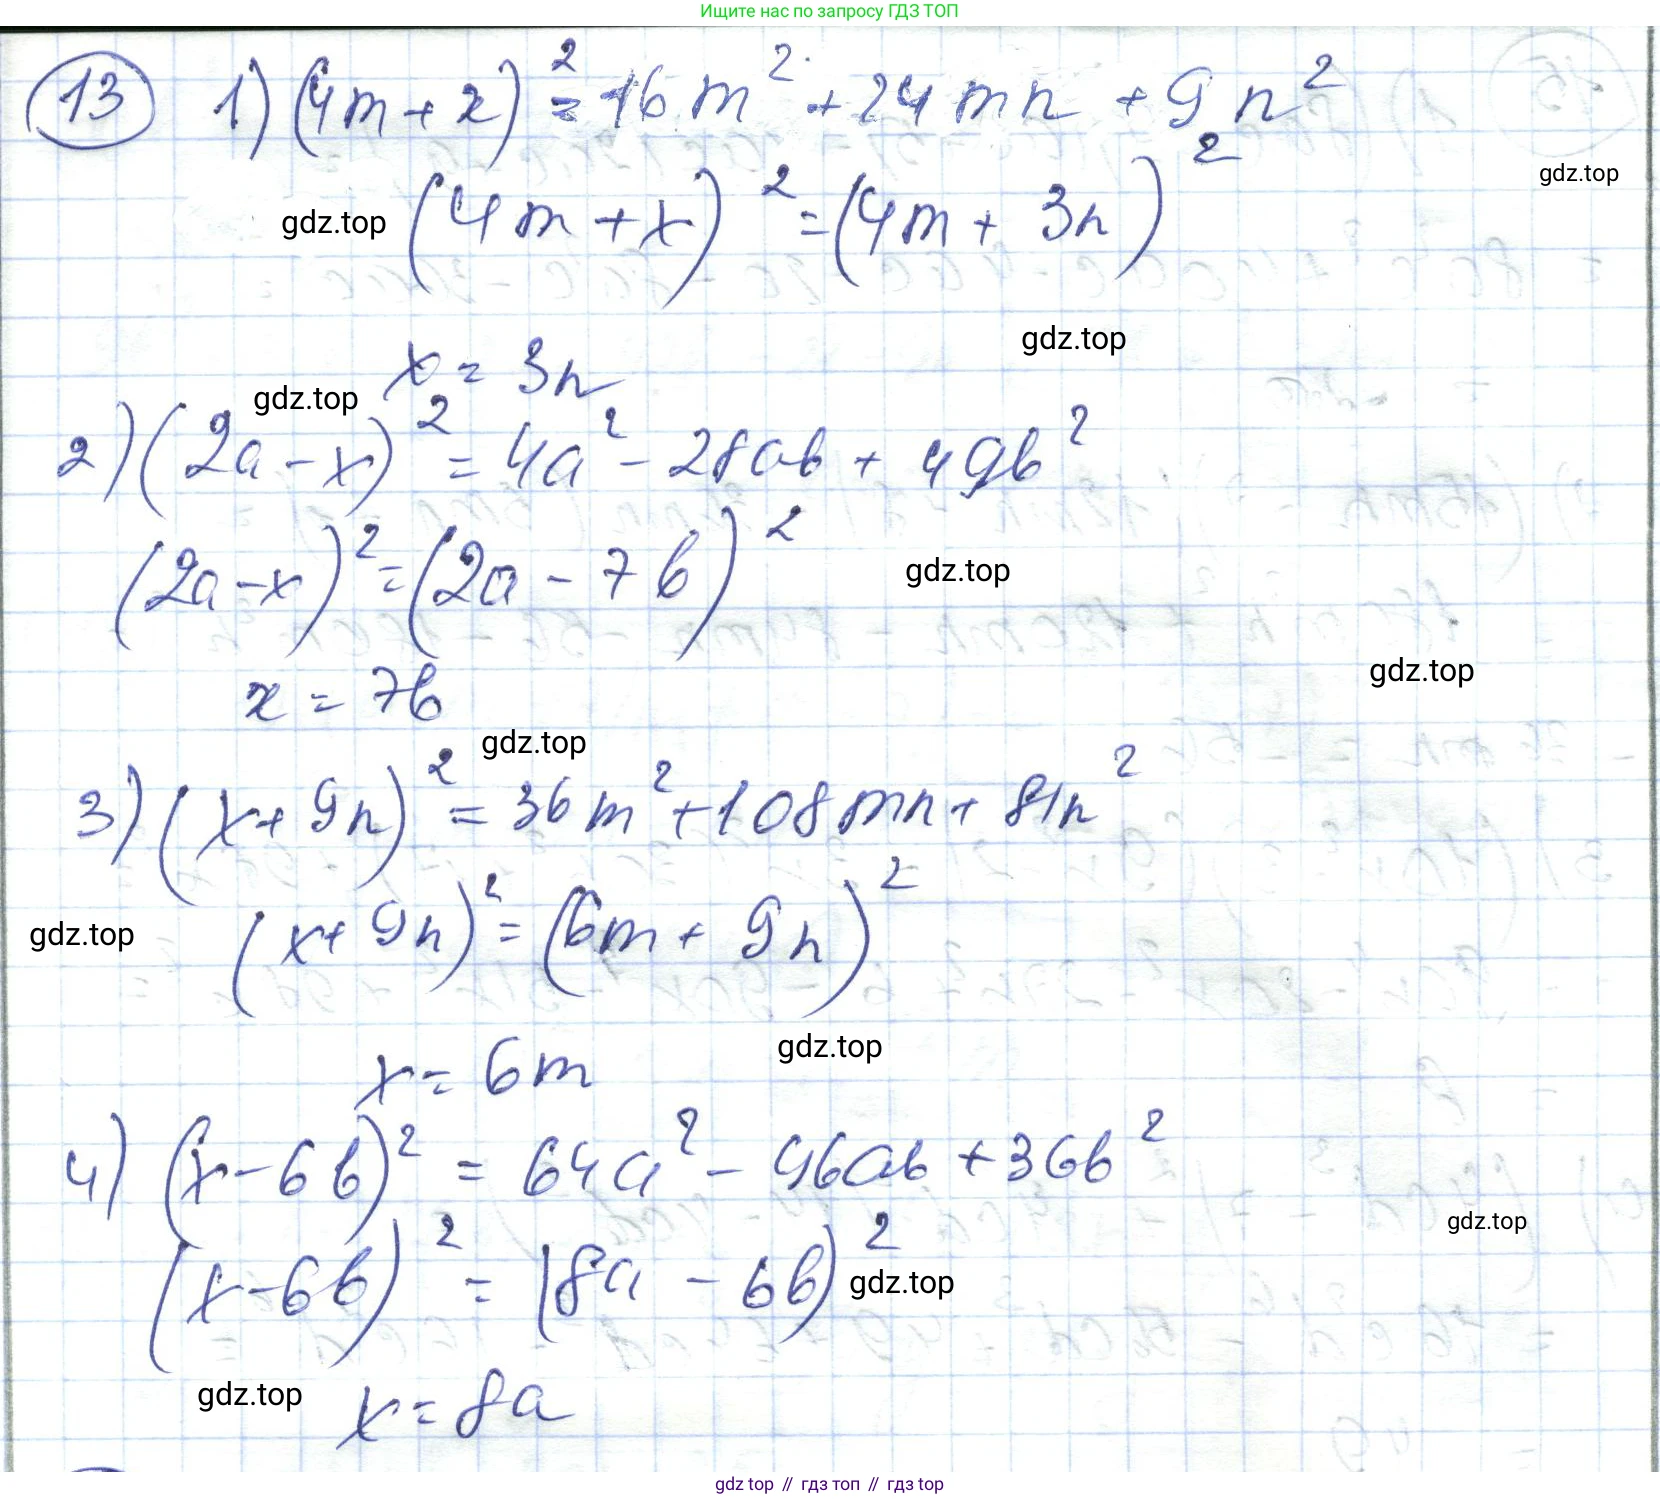 Ищите нас по запросу ГДЗ ТОП
13 1) (4m + x)² = 16m² + 24mn + 9n²
gdz.top
gdz.top (4m + x)² = (4m + 3n)²
gdz.top
x = 3n
gdz.top
2) (2a - x)² = 4a² - 28ab + 49b²
(2a - x)² = (2a - 7b)² gdz.top
gdz.top
x = 7b
gdz.top
3) (x + 9n)² = 36m² + 108mn + 81n²
gdz.top (x + 9n)² = (6m + 9n)²
gdz.top
x = 6m
4) (x - 6b)² = 64a² - 96ab + 36b²
gdz.top
(x - 6b)² = (8a - 6b)² gdz.top
gdz.top x = 8a
gdz top // гдз топ // gdz top